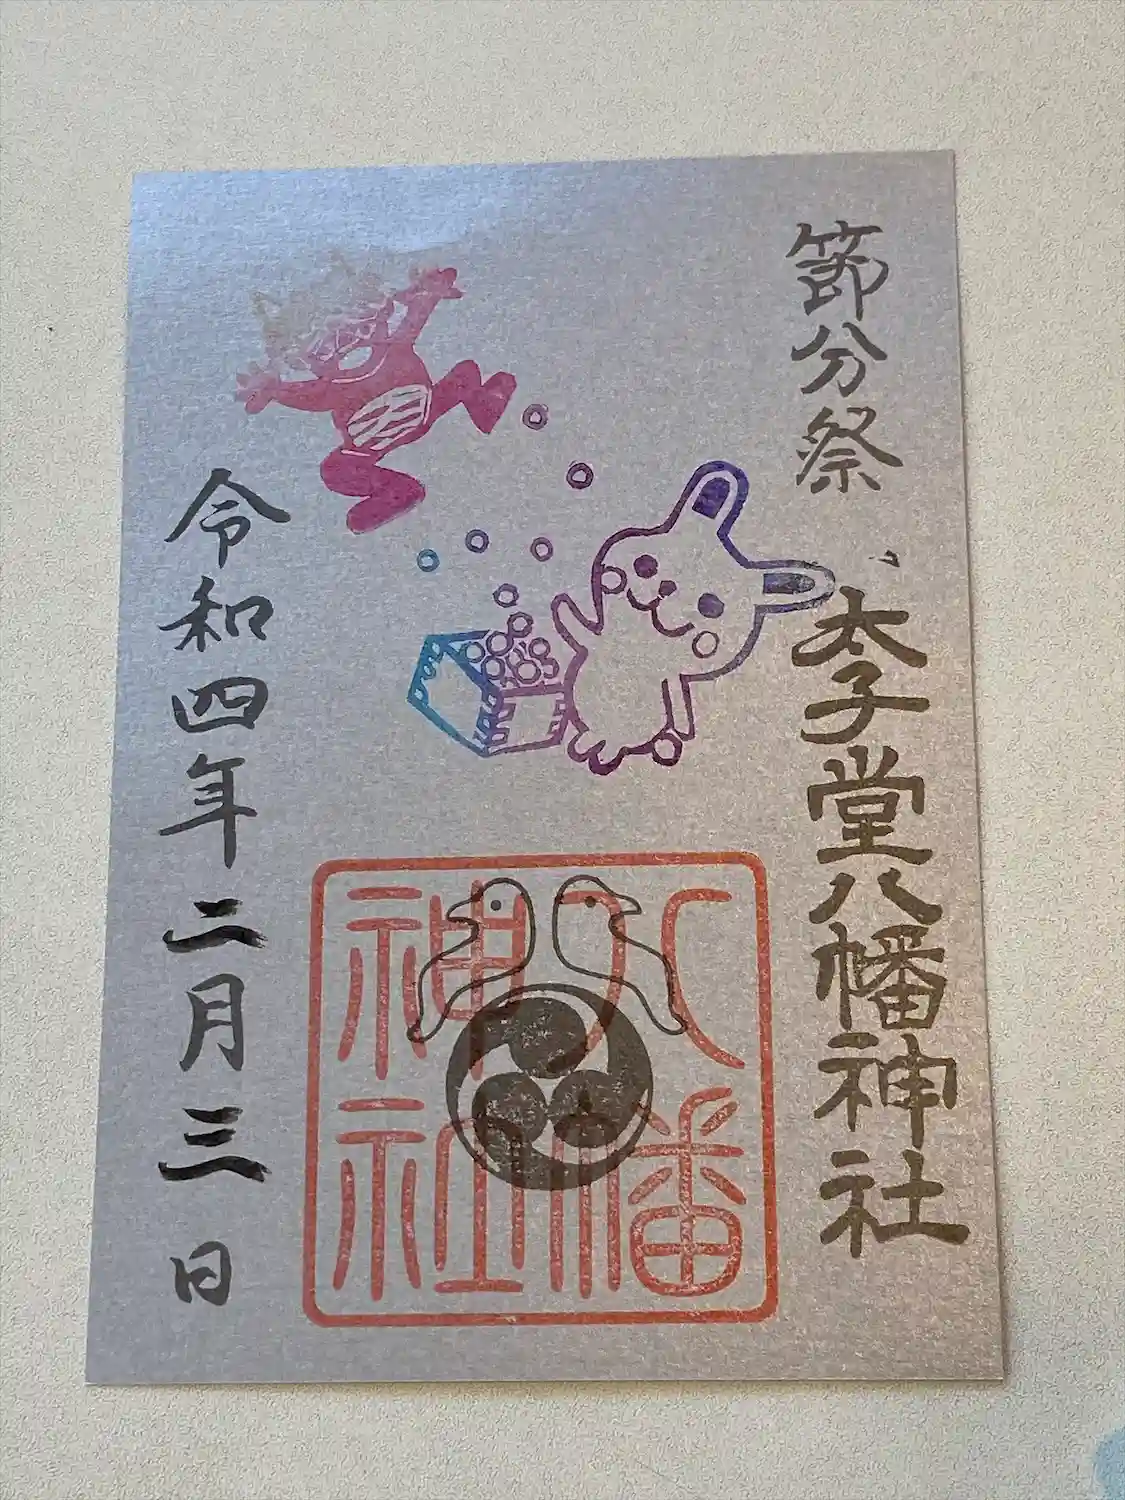 節分祭
太子堂八幡神社
八幡
神社
令和四年二月三日